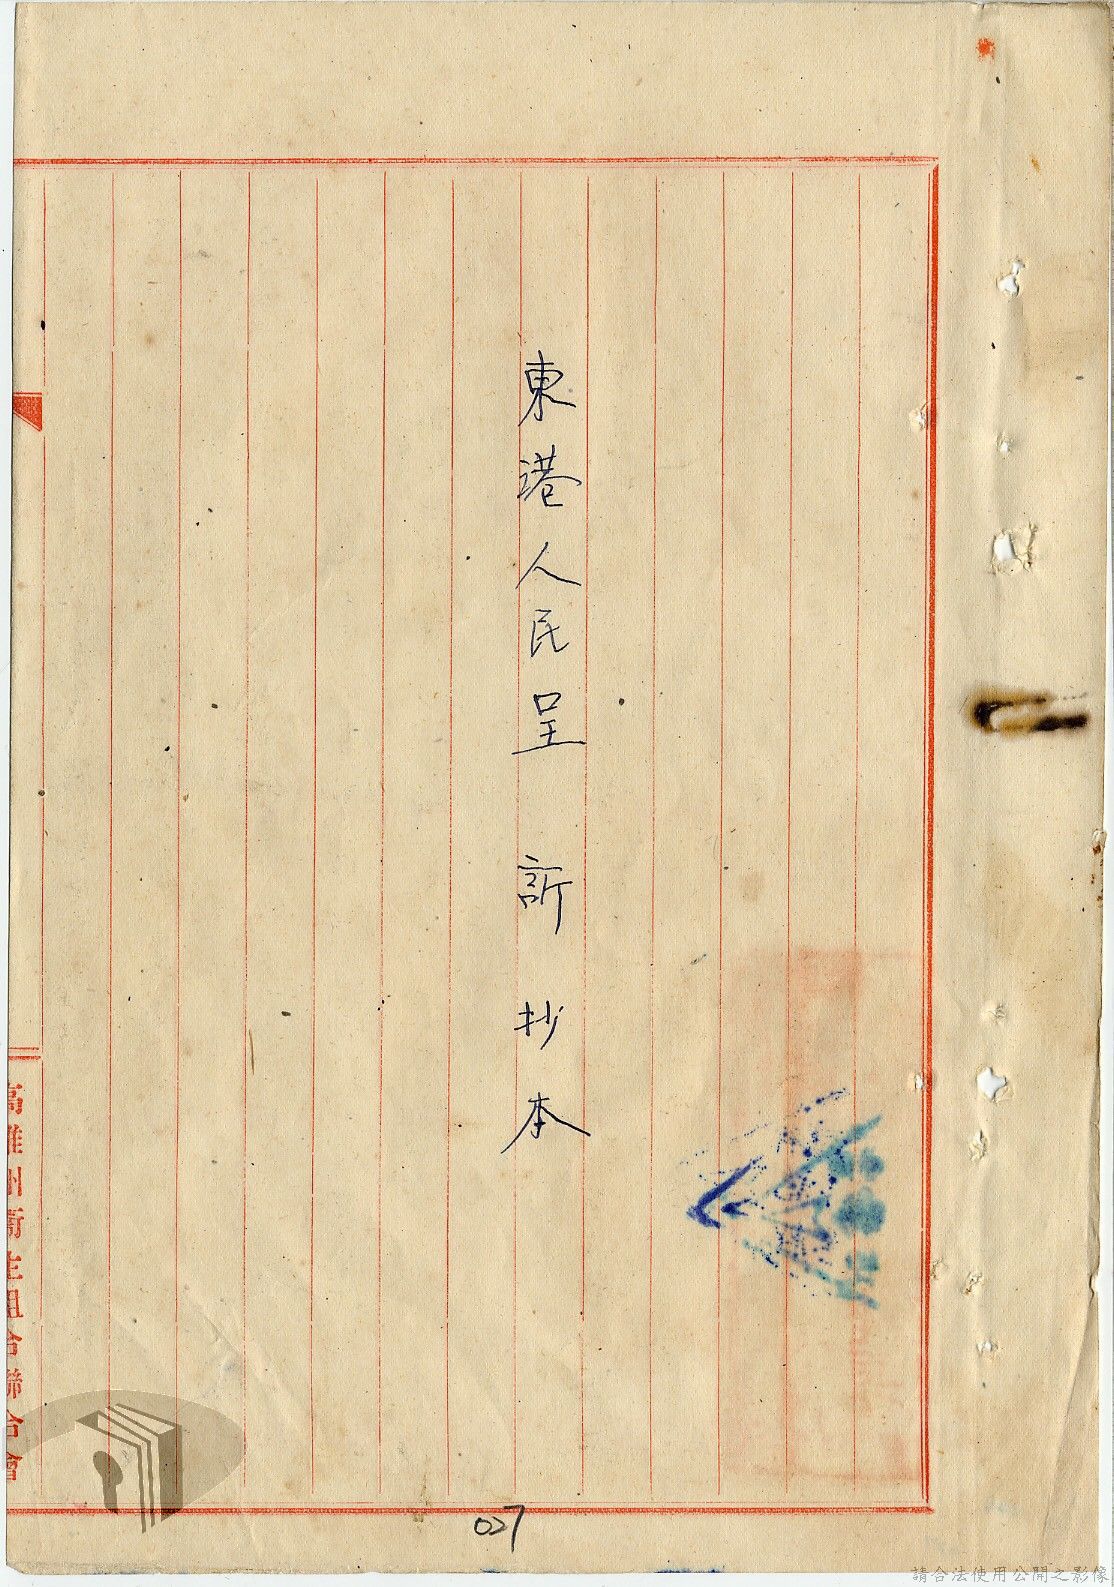 東港人民呈訴抄本
高雄州衛生組合聯合會
027
請合法使用公開之影像